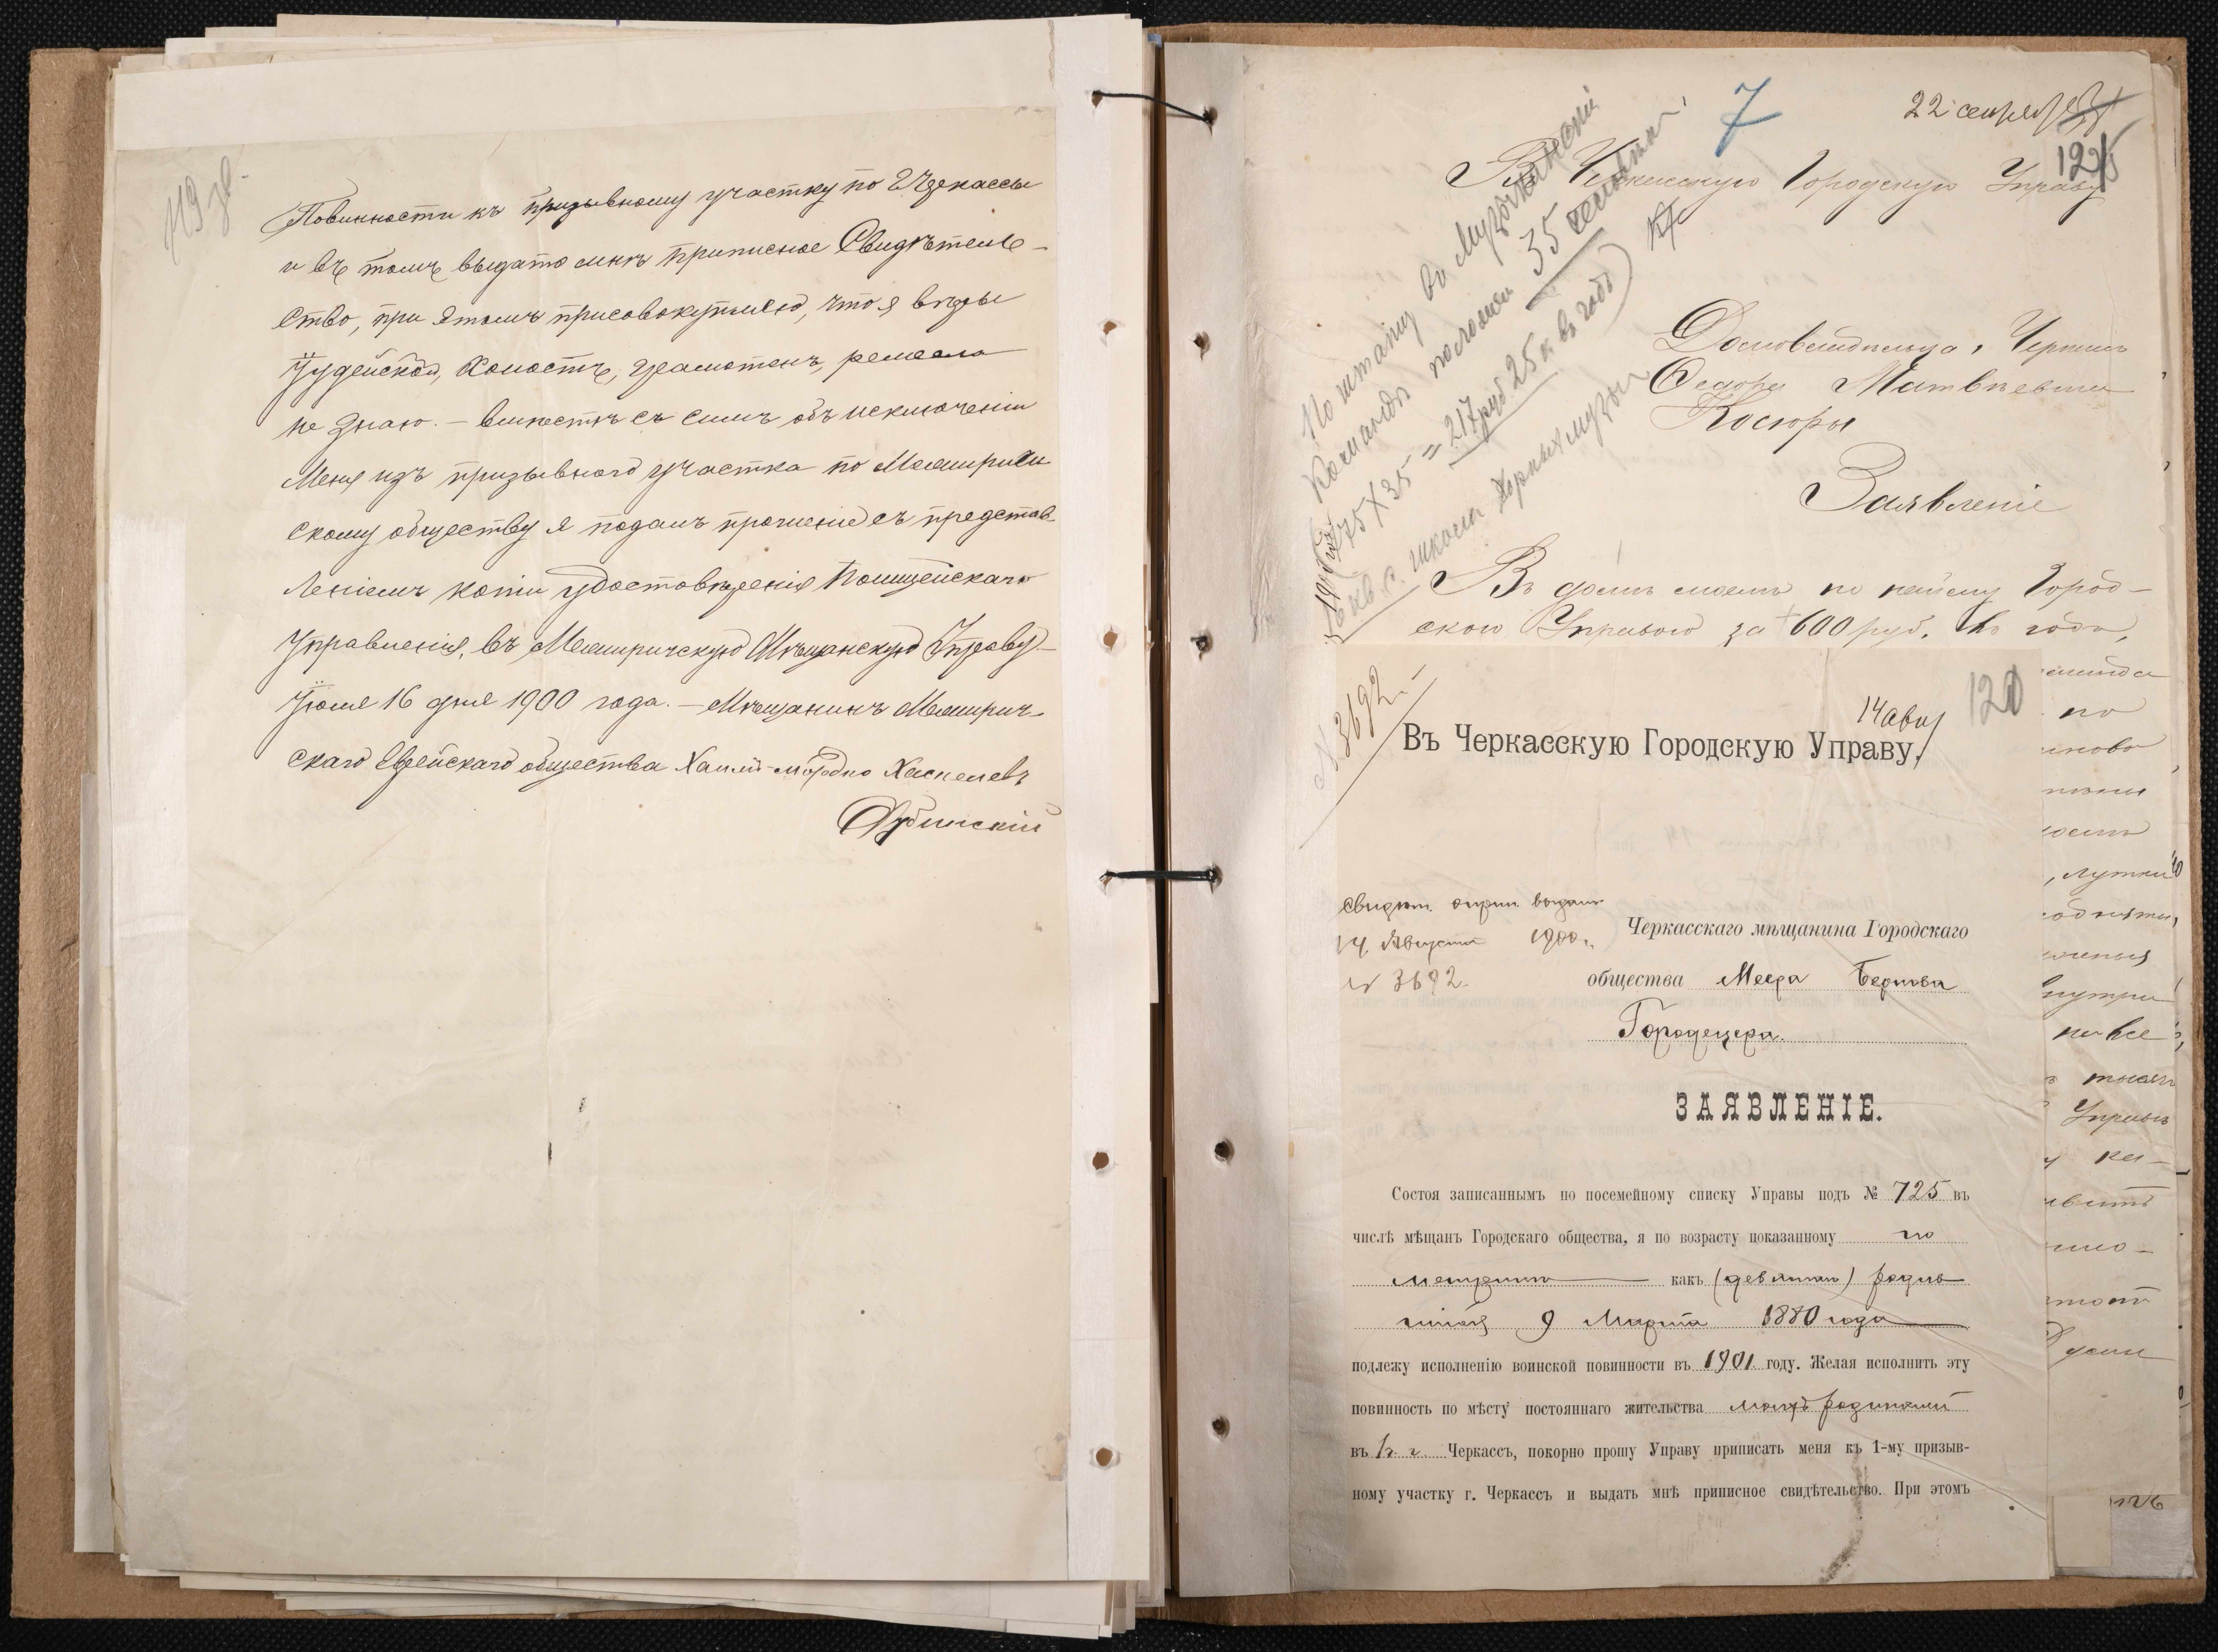 119 зв.
Повинности къ призывному участку по г. Черкассы
и въ томъ выдать мнѣ приписное Свидѣтель-
ство, при этомъ присовокупляю, что я вѣры
Іудейской, холостъ, грамотенъ, ремесла
не знаю. – вмѣстѣ съ симъ объ исключеніи
меня изъ призывного участка по Межирич
скому обществу я подалъ прошеніе съ представ-
леніемъ копіи удостовѣренія Полицейскаго
Управленія, въ Межиричскую Мѣщанскую Управу.
Іюля 16 дня 1900 года. – Мѣщанинъ Межирич-
скаго Еврейскаго общества Хаимъ-Мордко Хаскелевъ
7
22 сентяб
Въ Черкасскую Городскую Управу
По штату въ
команды положен 35
75 X 35 = 217 руб 25 к въ годъ
Домовладельца г. Черкассъ
Федора Матвѣевича
Косюры
Заявленіе
Въ домѣ моемъ по найму Город-
скою Управою за 600 руб. въ годъ,
№ 3692
14 авг
120
Въ Черкасскую Городскую Управу.
Свидѣт. о прип. выдано
14 Августа 1900 г.
№ 3692.
Черкасскаго мѣщанина Городскаго
общества Меера Беркова
Городецера.
ЗАЯВЛЕНІЕ.
Состоя записаннымъ по посемейному списку Управы подъ № 725 въ
числѣ мѣщанъ Городскаго общества, я по возрасту показанному по
метрикѣ какъ (девятаго) родив
шійся 9 Марта 1880 года
подлежу исполненію воинской повинности въ 1901 году. Желая исполнить эту
повинность по мѣсту постояннаго жительства моихъ родителей
въ г. Черкассъ, покорно прошу Управу приписать меня къ 1-му призыв-
ному участку г. Черкассъ и выдать мнѣ приписное свидѣтельство. При этомъ